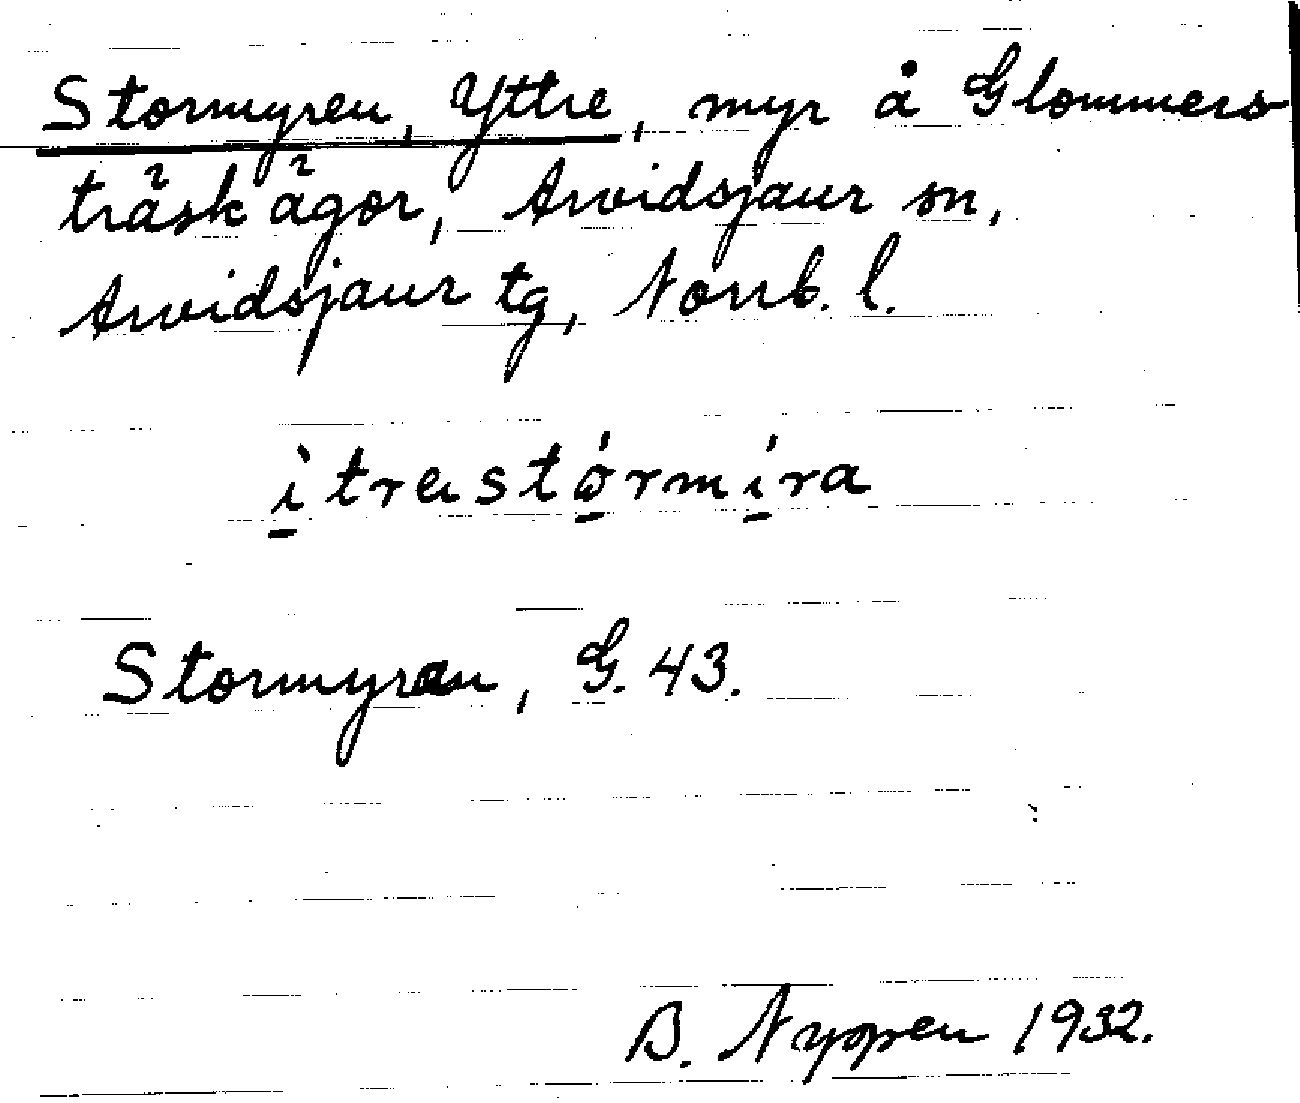 Stormyren, Yttre, myr å Glommers
träsk ägor, Arvidsjaur sn,
Arvidsjaur tg, Norrb. l.
ìtrɐstórmíra
Stormyran, G. 43.
B. Nyppen 1932.